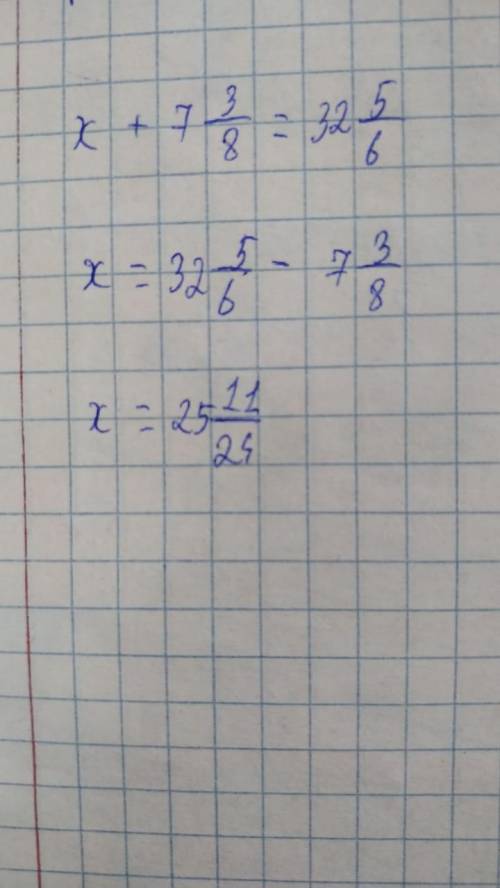 x + 7 3/8 = 32 5/6
x = 32 5/6 - 7 3/8
x = 25 11/24